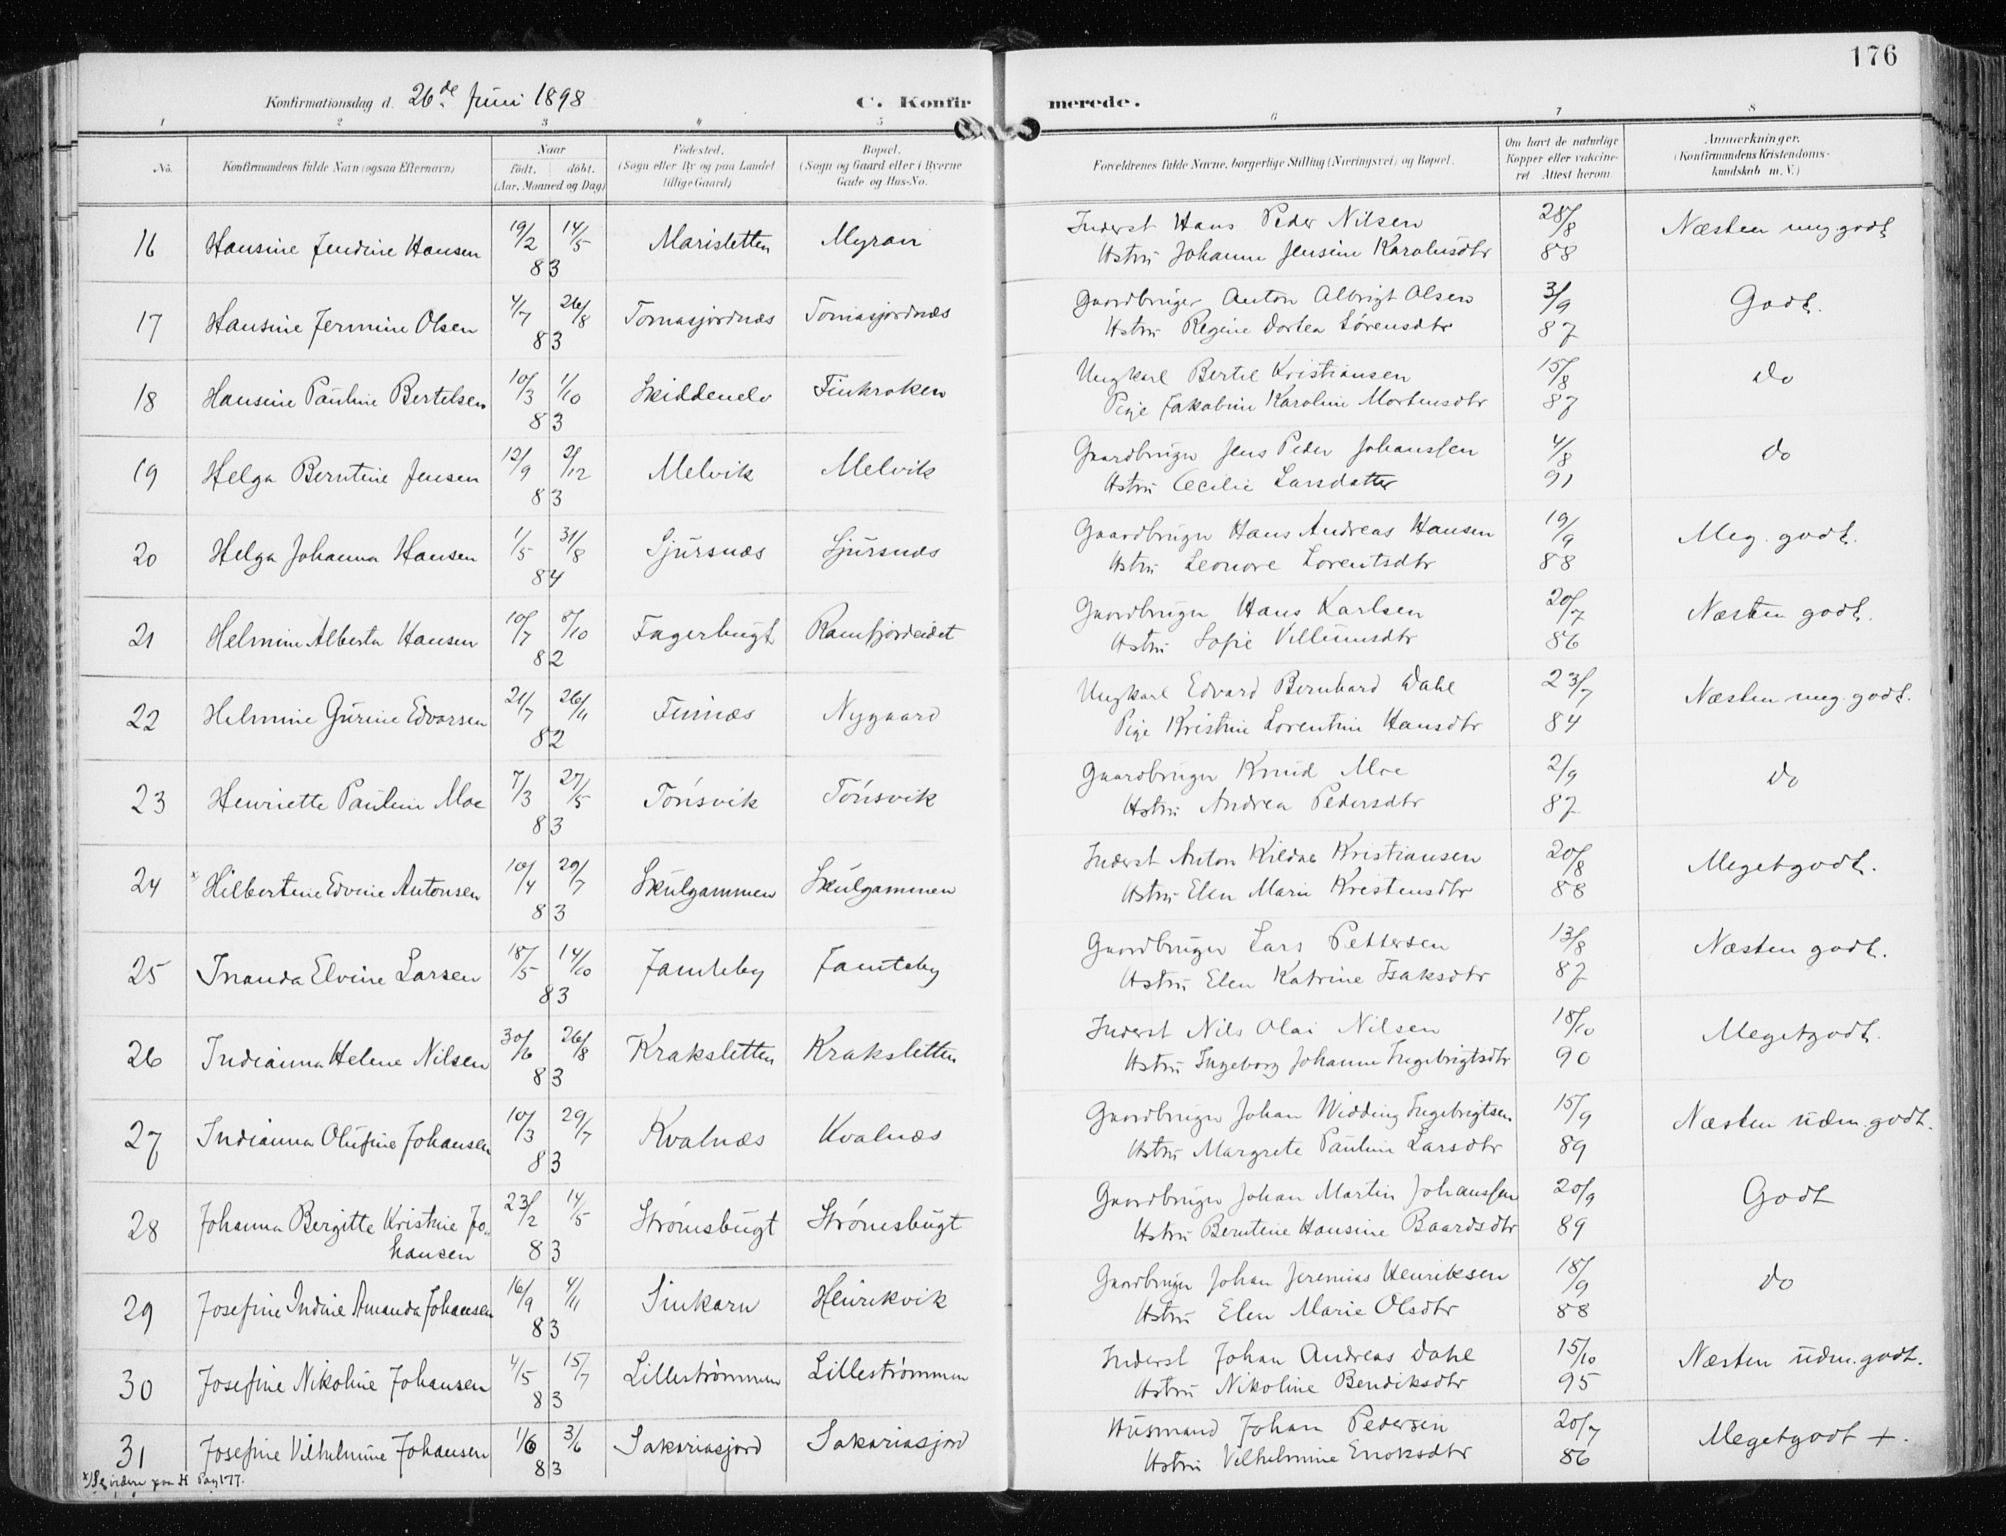 176
Konfirmationsdag d. 26de Juni 1898
C. Konfirmerede.
1 2 3 4 5 6 7 8
No.
Konfirmandens fulde Navn (ogsaa Efternavn)
Naar
født. døbt.
(Aar, Maaned og Dag)
Fødested.
(Sogn eller By og paa Landet
tillige Gaard)
Bopæl.
(Sogn og Gaard eller i Byerne
Gade og Hus-No.
Forældrenes fulde Navne, borgerlige Stilling (Næringsvei) og Bopæl.
Om havt de naturlige
Kopper eller vakcine-
ret Attest herom.
Anmerkninger.
(Konfirmandens Kristendoms-
kundskab m. V.)
16 Hansine Jendine Hansen 19/2 14/5 83 Marisletten Myran Inderst Hans Peder Nilsen 28/8 Næsten meg. godt
Hstru Johanne Jensine Karolusdtr 88
17 Hansine Jermine Olsen 4/7 26/8 83 Tomasjordnæs Tomasjordnæs Gaardbruger Anton Albrigt Olsen 3/9 Godt.
Hstru Regine Dortea Sørensdtr 87
18 Hansine Pauline Bertelsen 10/3 1/10 83 Skiddenelv Finkroken Ungkarl Bertel Kristiansen 15/8 do
Pige Jakobine Karoline Mortensdtr 87
19 Helga Berntine Jensen 12/9 2/12 83 Melvik Melvik Gaardbruger Jens Peder Johanssen 4/8 do
Hstru Cecilie Larsdatter 91
20 Helga Johanna Hansen 1/5 31/8 84 Sjursnæs Sjursnæs Gaardbruger Hans Andreas Hansen 19/9 Meg. godt.
Hstru Leonore Lorentsdtr 88
21 Helmine Alberta Hansen 10/7 8/10 82 Fagerbugt Ramfjordeidet Gaardbruger Hans Karlsen 20/7 Næsten godt.
Hstru Sofie Villumsdtr 86
22 Helmine Gurine Edvarsen 21/7 26/11 82 Finnæs Nygaard Ungkarl Edvard Bernhard Dahl 23/7 Næsten meg. godt.
Pige Kristine Lorentine Hansdtr 84
23 Henriette Pauline Moe 7/3 27/5 83 Tønsvik Tønsvik Gaardbruger Knud Moe 2/9 do
Hstru Andrea Pedersdtr 87
24 x Hilbertine Edvine Antonsen 10/4 29/7 83 Skulgammen Skulgammen Inderst Anton Kildal Kristiansen 20/8 Megetgodt.
Hstru Elen Marie Kristensdtr 88
25 Inanda Elvine Larsen 18/5 14/10 83 Jamteby Jamteby Gaardbruger Lars Pettersen 13/8 Næsten godt.
Hstru Elen Katrine Isaksdtr 87
26 Indianna Helene Nilsen 30/6 26/8 83 Kraksletten Kraksletten Inderst Nils Olai Nilsen 18/10 Megetgodt.
Hstru Ingeborg Johanne Ingebrigtsdtr 90
27 Indianna Olufine Johansen 10/3 29/7 83 Kvalnæs Kvalnæs Gaardbruger Johan Widding Ingebrigtsen 15/9 Næsten udm. godt.
Hstru Margrete Pauline Larsdtr 89
28 Johanna Bergitte Kristine Jo- 23/2 14/5 83 Strømsbugt Strømsbugt Gaardbruger Johan Martin Johanssen 20/9 Godt
hansen Hstru Berntine Hansine Baardsdtr 89
29 Josefine Indine Amanda Johansen 16/9 4/11 83 Sinkarn Heinrikvik Gaardbruger Johan Jeremias Henriksen 18/9 do
Hstru Elen Marie Olsdtr 88
30 Josefine Nikoline Johansen 4/5 15/7 83 Lillestrømmen Lillestrømmen Inderst Johan Andreas Dahl 15/10 Næsten udm. godt.
Hstru Nikoline Bendiksdtr 95
31 Josefine Vilhelmine Johansen 1/6 3/6 83 Sakariasjord Sakariasjord Husmand Johan Pedersen 20/7 Megetgodt +.
Hstru Vilhelmine Enoksdtr 86
x/ Se videre paa H Pag 177.